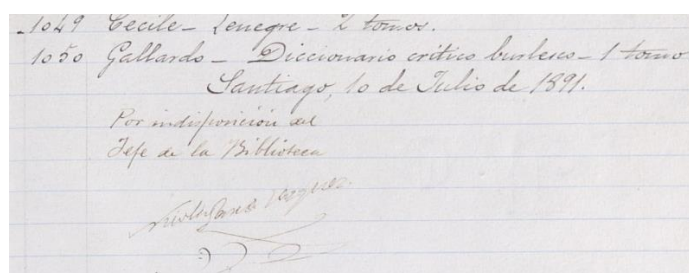 1049 Cecile - Lenegre - 2 tomos.
1050 Gallardo - Diccionario critico burlesco - 1 tomo
Santiago, 10 de Julio de 1891.
Por indisposición del
Jefe de la Biblioteca